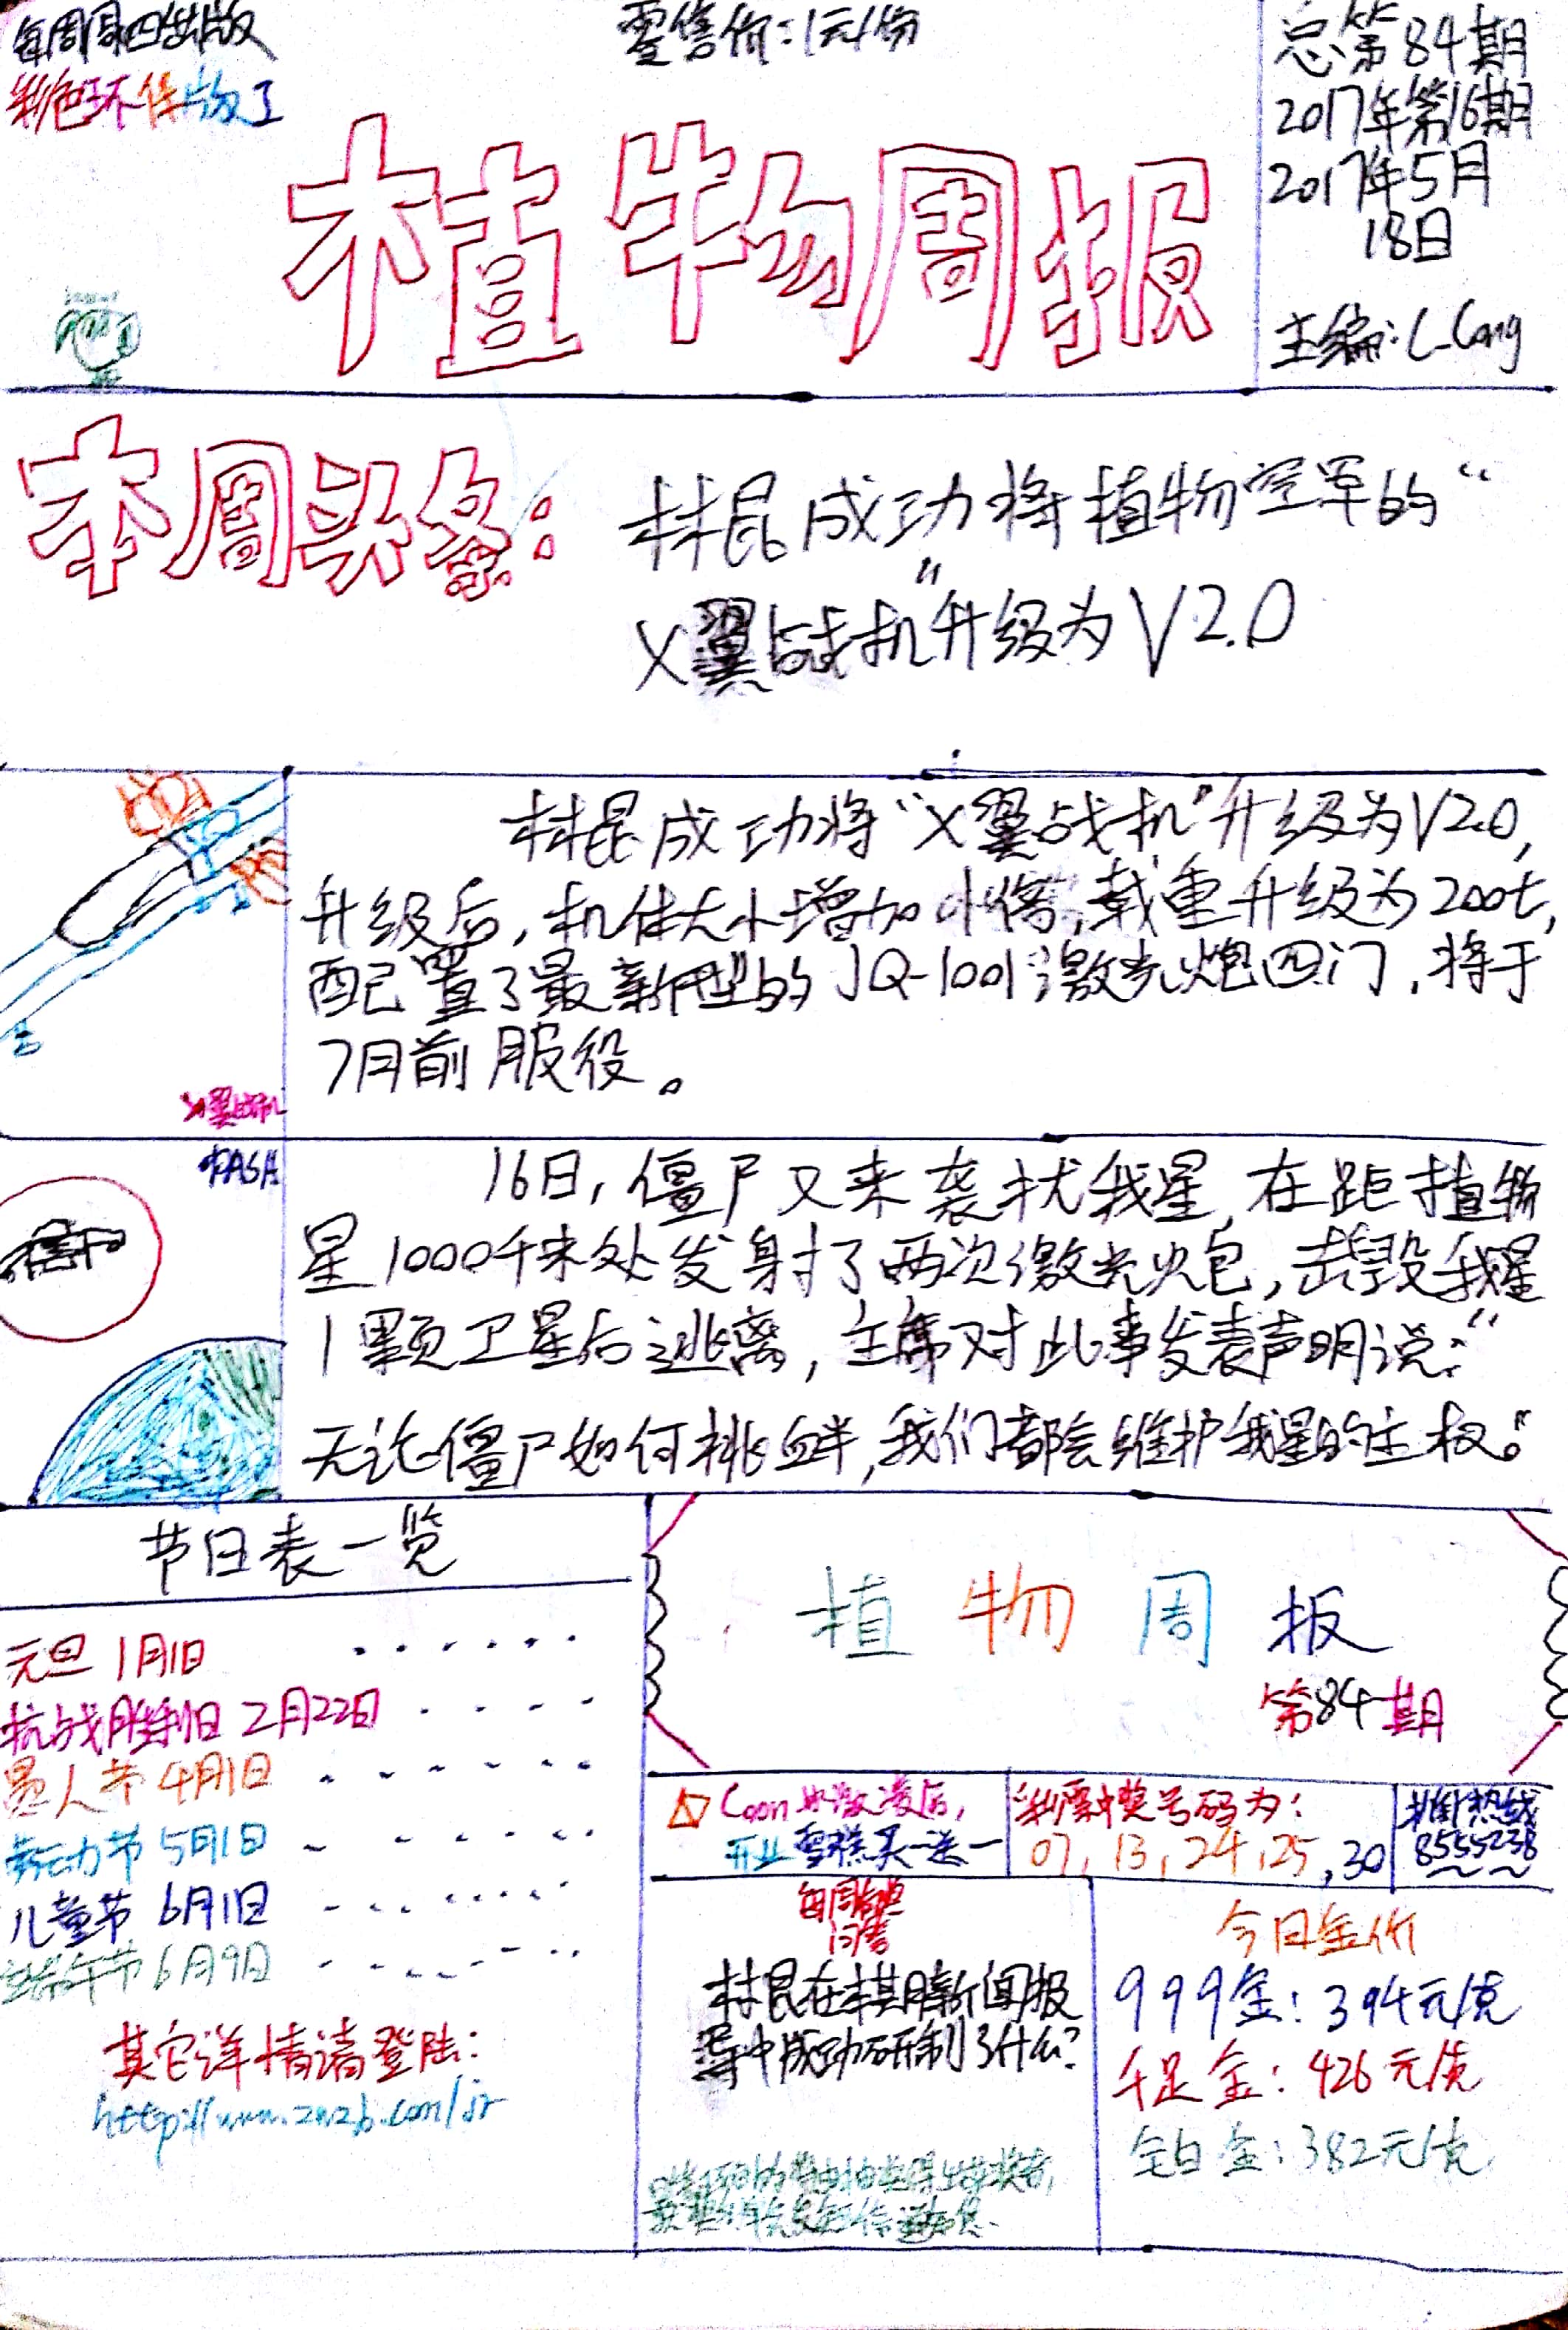 每周周四出版
彩色环保版了
零售价:1元/份
总第84期
2017年第16期
2017年5月
18日
主编:L_Cong
植物周报
本周头条:
林昆成功将植物空军的“
X翼战机”升级为V2.0
林昆成功将“X翼战机”升级为V2.0,
升级后,机体大小增加小倍,载重升级为200t,
配置了最新型的JQ-1001激光炮四门,将于
7月前服役。
X翼战机
16日,僵尸又来袭扰我星,在距植物
星1000千米处发射了两次激光炮,击毁我星
1颗卫星后逃离,主席对此事发表声明说:“
无论僵尸如何挑衅,我们都会维护我星的主权。”
节日表一览
元旦 1月1日
抗战胜利日 2月22日
愚人节 4月1日
劳动节 5月1日
儿童节 6月1日
端午节 6月9日
其它详情请登陆:
植物周报
第84期
开业雪糕买一送一
彩票中奖号码为:
07,13,24,25,30
热线
8555238
每周有奖
问答
林昆在本期新闻报
导中成功研制了什么?
今日金价
999金:394元/克
千足金:426元/克
铂金:382元/克